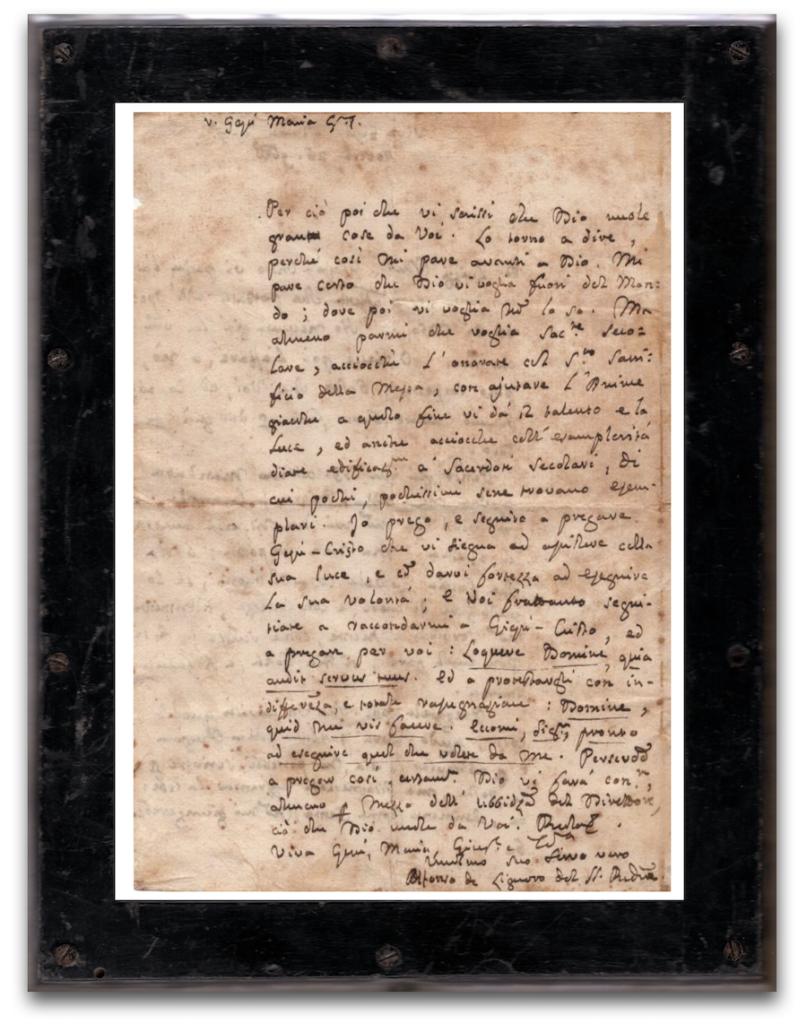 V. Gesù Maria G. T.
Per ciò poi che vi scrissi che Dio vuole
gran cose da Voi. Lo torno a dire,
perché così mi pare avanti a Dio. Mi
pare certo che Dio vi voglia fuori del Mon=
do; dove poi vi voglia no lo so. Ma
almeno parmi che voglia Sac.te Seco=
lare, acciocché l'onorate col S.to Sacri=
ficio della Messa, con ajutare l'Anime
giacché a questo fine vi dà il talento e la
luce, ed anche acciocché coll' esemplarità
diate edificaz.ne a' Sacerdoti secolari, di
cui pochi, pochissimi sene trovano esem-
plari. Io prego, e seguito a pregare
Gesù-Cristo che vi siegua ad assistere colla
sua luce, e a darvi fortezza ad eseguire
la sua volontà; e Voi frattanto segui-
tiate a raccordarmi a Giesù-Cristo, ed
a pregare per voi: Loquere Domine, quia
audit servus tuus. Ed a protestargli con in-
differeza, e totale rassegnazione: Domine,
quid me vis facere. Eccomi, Sig.re, pronto
ad eseguire quel che volete da me. Persevedo
a pregar così, Dio vi farà con.re,
almeno p mezzo dell' ubbidza del Direttore,
ciò che Dio vuole da Voi.
Viva Gesù, Maria, Gius.e e Ter.a
suo Servo vero
Alfonso de Liguoro del SS. Redre.